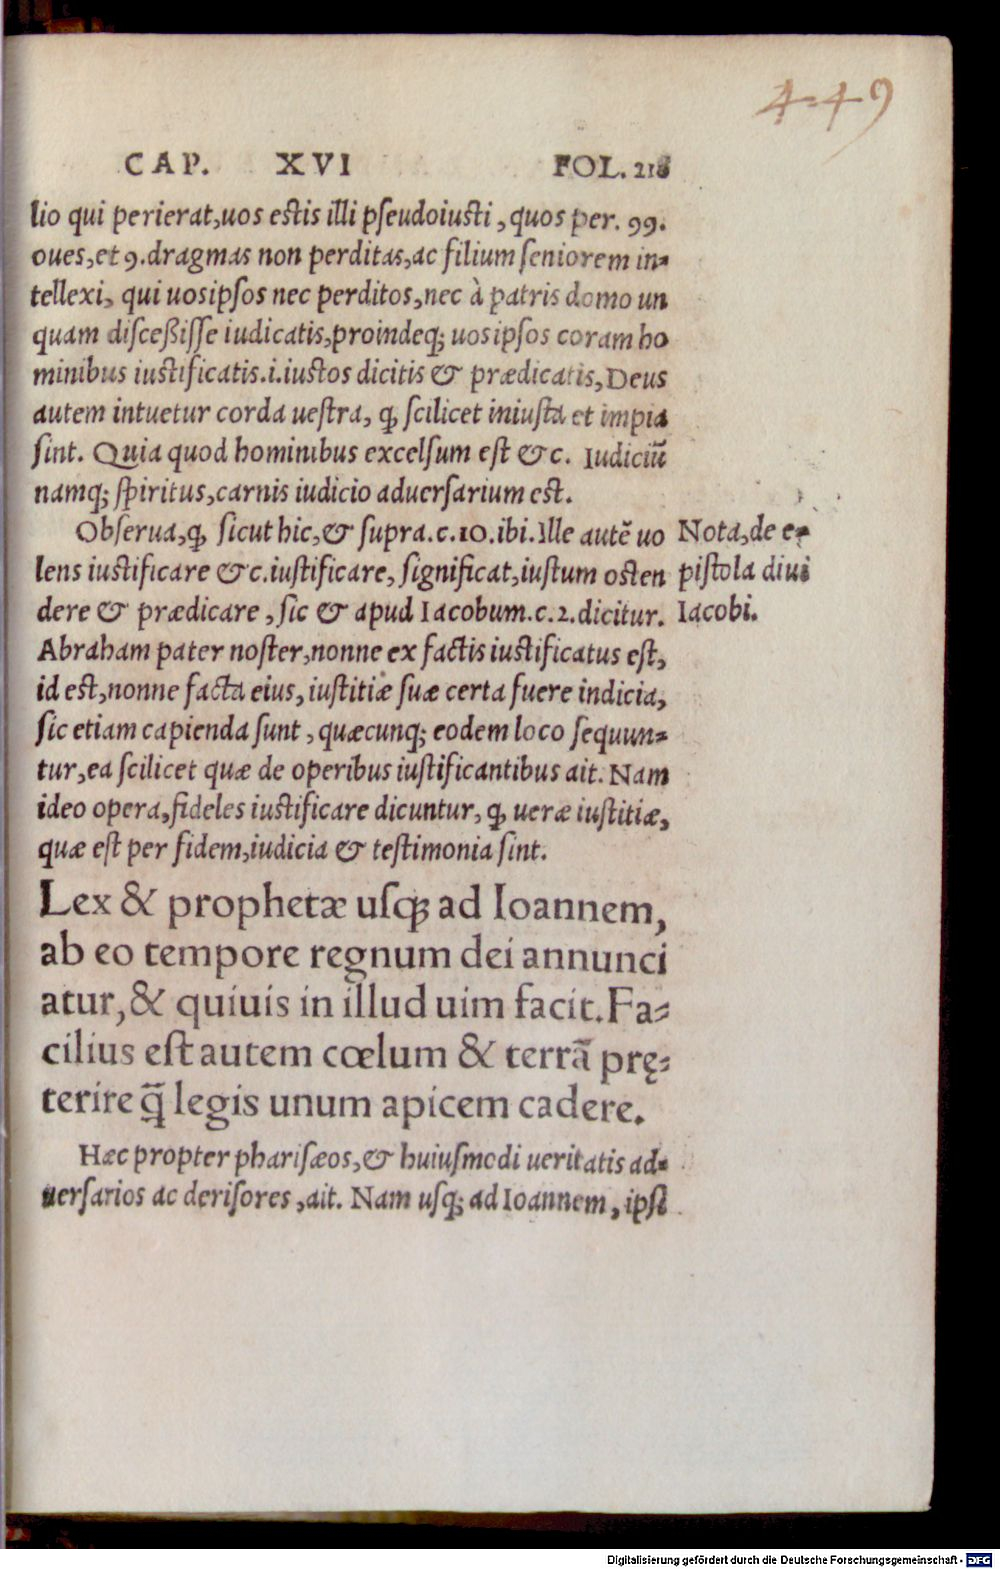 4-49
CAP. XVI FOL. 218
lio qui perierat,uos estis illi pseudoiusti, quos per. 99.
oues,et 9.dragmas non perditas,ac filium seniorem in-
tellexi, qui uosipsos nec perditos,nec à patris domo un
quam disceßisse iudicatis,proindeq; uosipsos coram ho
minibus iustificatis.i.iustos dicitis & prædicatis, Deus
autem intuetur corda uestra, ꝙ scilicet iniusta et impia
sint. Quia quod hominibus excelsum est &c. Iudiciū
namq; spiritus,carnis iudicio aduersarium est.
Obserua,ꝙ sicut hic,& supra.c.10.ibi.Ille autē uo
lens iustificare &c.iustificare, significat,iustum osten
dere & prædicare, sic & apud Iacobum.c.2.dicitur.
Nota,de e-
pistola diui
Iacobi.
Abraham pater noster,nonne ex factis iustificatus est,
id est,nonne facta eius, iustitiæ suæ certa fuere indicia,
sic etiam capienda sunt, quæcunq; eodem loco sequun-
tur,ea scilicet quæ de operibus iustificantibus ait. Nam
ideo opera,fideles iustificare dicuntur, ꝙ ueræ iustitiæ,
quæ est per fidem,iudicia & testimonia sint.
Lex & prophetæ usq; ad Ioannem,
ab eo tempore regnum dei annunci
atur,& quiuis in illud uim facit. Fa-
cilius est autem cœlum & terrā prę-
terire q̄ legis unum apicem cadere.
Hæc propter pharisæos,& huiusmodi ueritatis ad-
uersarios ac derisores, ait. Nam usq; ad Ioannem, ipsi
Digitalisierung gefördert durch die Deutsche Forschungsgemeinschaft - DFG